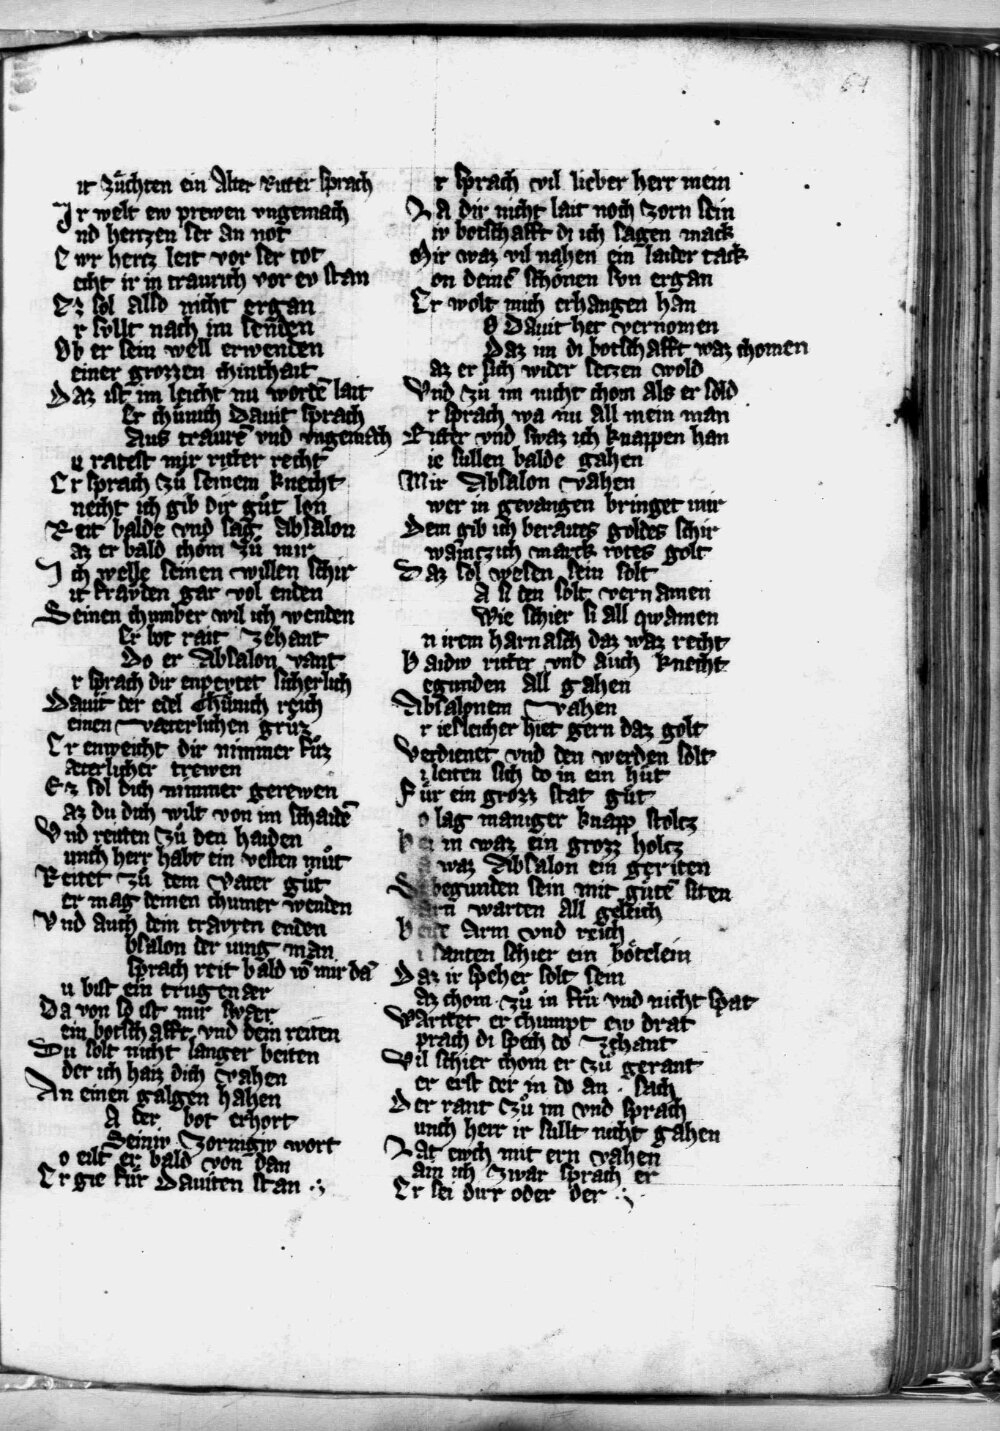 61
it züchten ein Alter Ritter sprach
Ir welt ew prewen vngemach
nd hertzen ser an not
Ewr hertz leit vor ser tot
echt ir in traurich vor ev stan
Ez sol also nicht ergan
r sŷllt nach im senden
Ob er sein well erwenden
einer grozzen chinthait
Daz ist im leicht nu wortē lait
Er chünich Dauit sprach
Aus traurē vnd vngemach
u ratest mir ritter recht
Er sprach zů seinem knecht
necht ich gib dir gůt lon
Reit balde vnd sag Absalon
az er bald chom zů mir
Ich welle seinen willen schir
it frayden gar vol enden
Seinen chumber wil ich wenden
Er bot rait zehant
Do er Absalon vant
r sprach dir enpeytet sicherlich
Dauit der edel Chünich reich
einen vaterlichen grůz
Er enweicht dir nimmer fůz
äterlicher trewen
Ez sol dich nimmer gerewen
az du dich wilt von im schaidē
Vnd reitten zů den haiden
unch herr habt ein vesten můt
Reitet zů dem vater gůt
er mag deinen chumer wenden
Vnd auch dein trauren enden
bsalon der iung man
sprach reit bald vō mir dā
u bist ein trugenær
Da von so ist mir swær
ein botschafft vnd dein reiten
Du solt nicht langer beiten
der ich haiz dich vahen
An einen galgen hahen
A der bot erhort
Seiniv zornigiv wort
o eilt er bald von dan
Er gie für Dauiten stan
r sprach vil lieber herr mein
La dir nicht lait noch zorn sein
iv botschafft di ich sagen mack
Mir waz vil nahen ein laider tack
on deinē schönen svn ergan
Er wolt mich erhangen han
O Dauit het vernomen
Daz im di botschafft waz chomen
az er sich wider setzen wold
Vnd zů im nicht chom als er sold
r sprach wa nu all mein man
Ritter vnd swaz ich knappen han
ie sullen balde gahen
Mir Absalon vahen
wer in gevangen bringet mir
Dem gib ich beraites goldes schir
wainczich marck rotes golt
Daz sol wesen sein solt
A si den solt vernamen
Wie schier si all qwamen
n irem harnasch daz waz recht
Baidiv ritter vnd auch knecht
egunden all gahen
Absalonem vahen
r iesleicher hiet gern daz golt
Verdienet vnd den werden solt
i leiten sich do in ein hůt
Für ein grozz stat gůt
o lag maniger knapp stoltz
Bei in waz ein grozz holtz
a waz Absalon ein geriten
Si begunden sein mit gůtē siten
arn warten all geleich
Beide Arm vnd reich
i santen schier ein bötelein
Daz ir speher solt sein
az chom zů in frů vnd nicht spat
Warttet er chumpt ew drat
prach di spech do zehant
Vil schier chom er zů gerant
er erst der in do an sach
Der rant zů im vnd sprach
unch herr ir sullt nicht gahen
Lat ewch mit ern vahen
ain ich zwar sprach er
Er sei dirr oder der